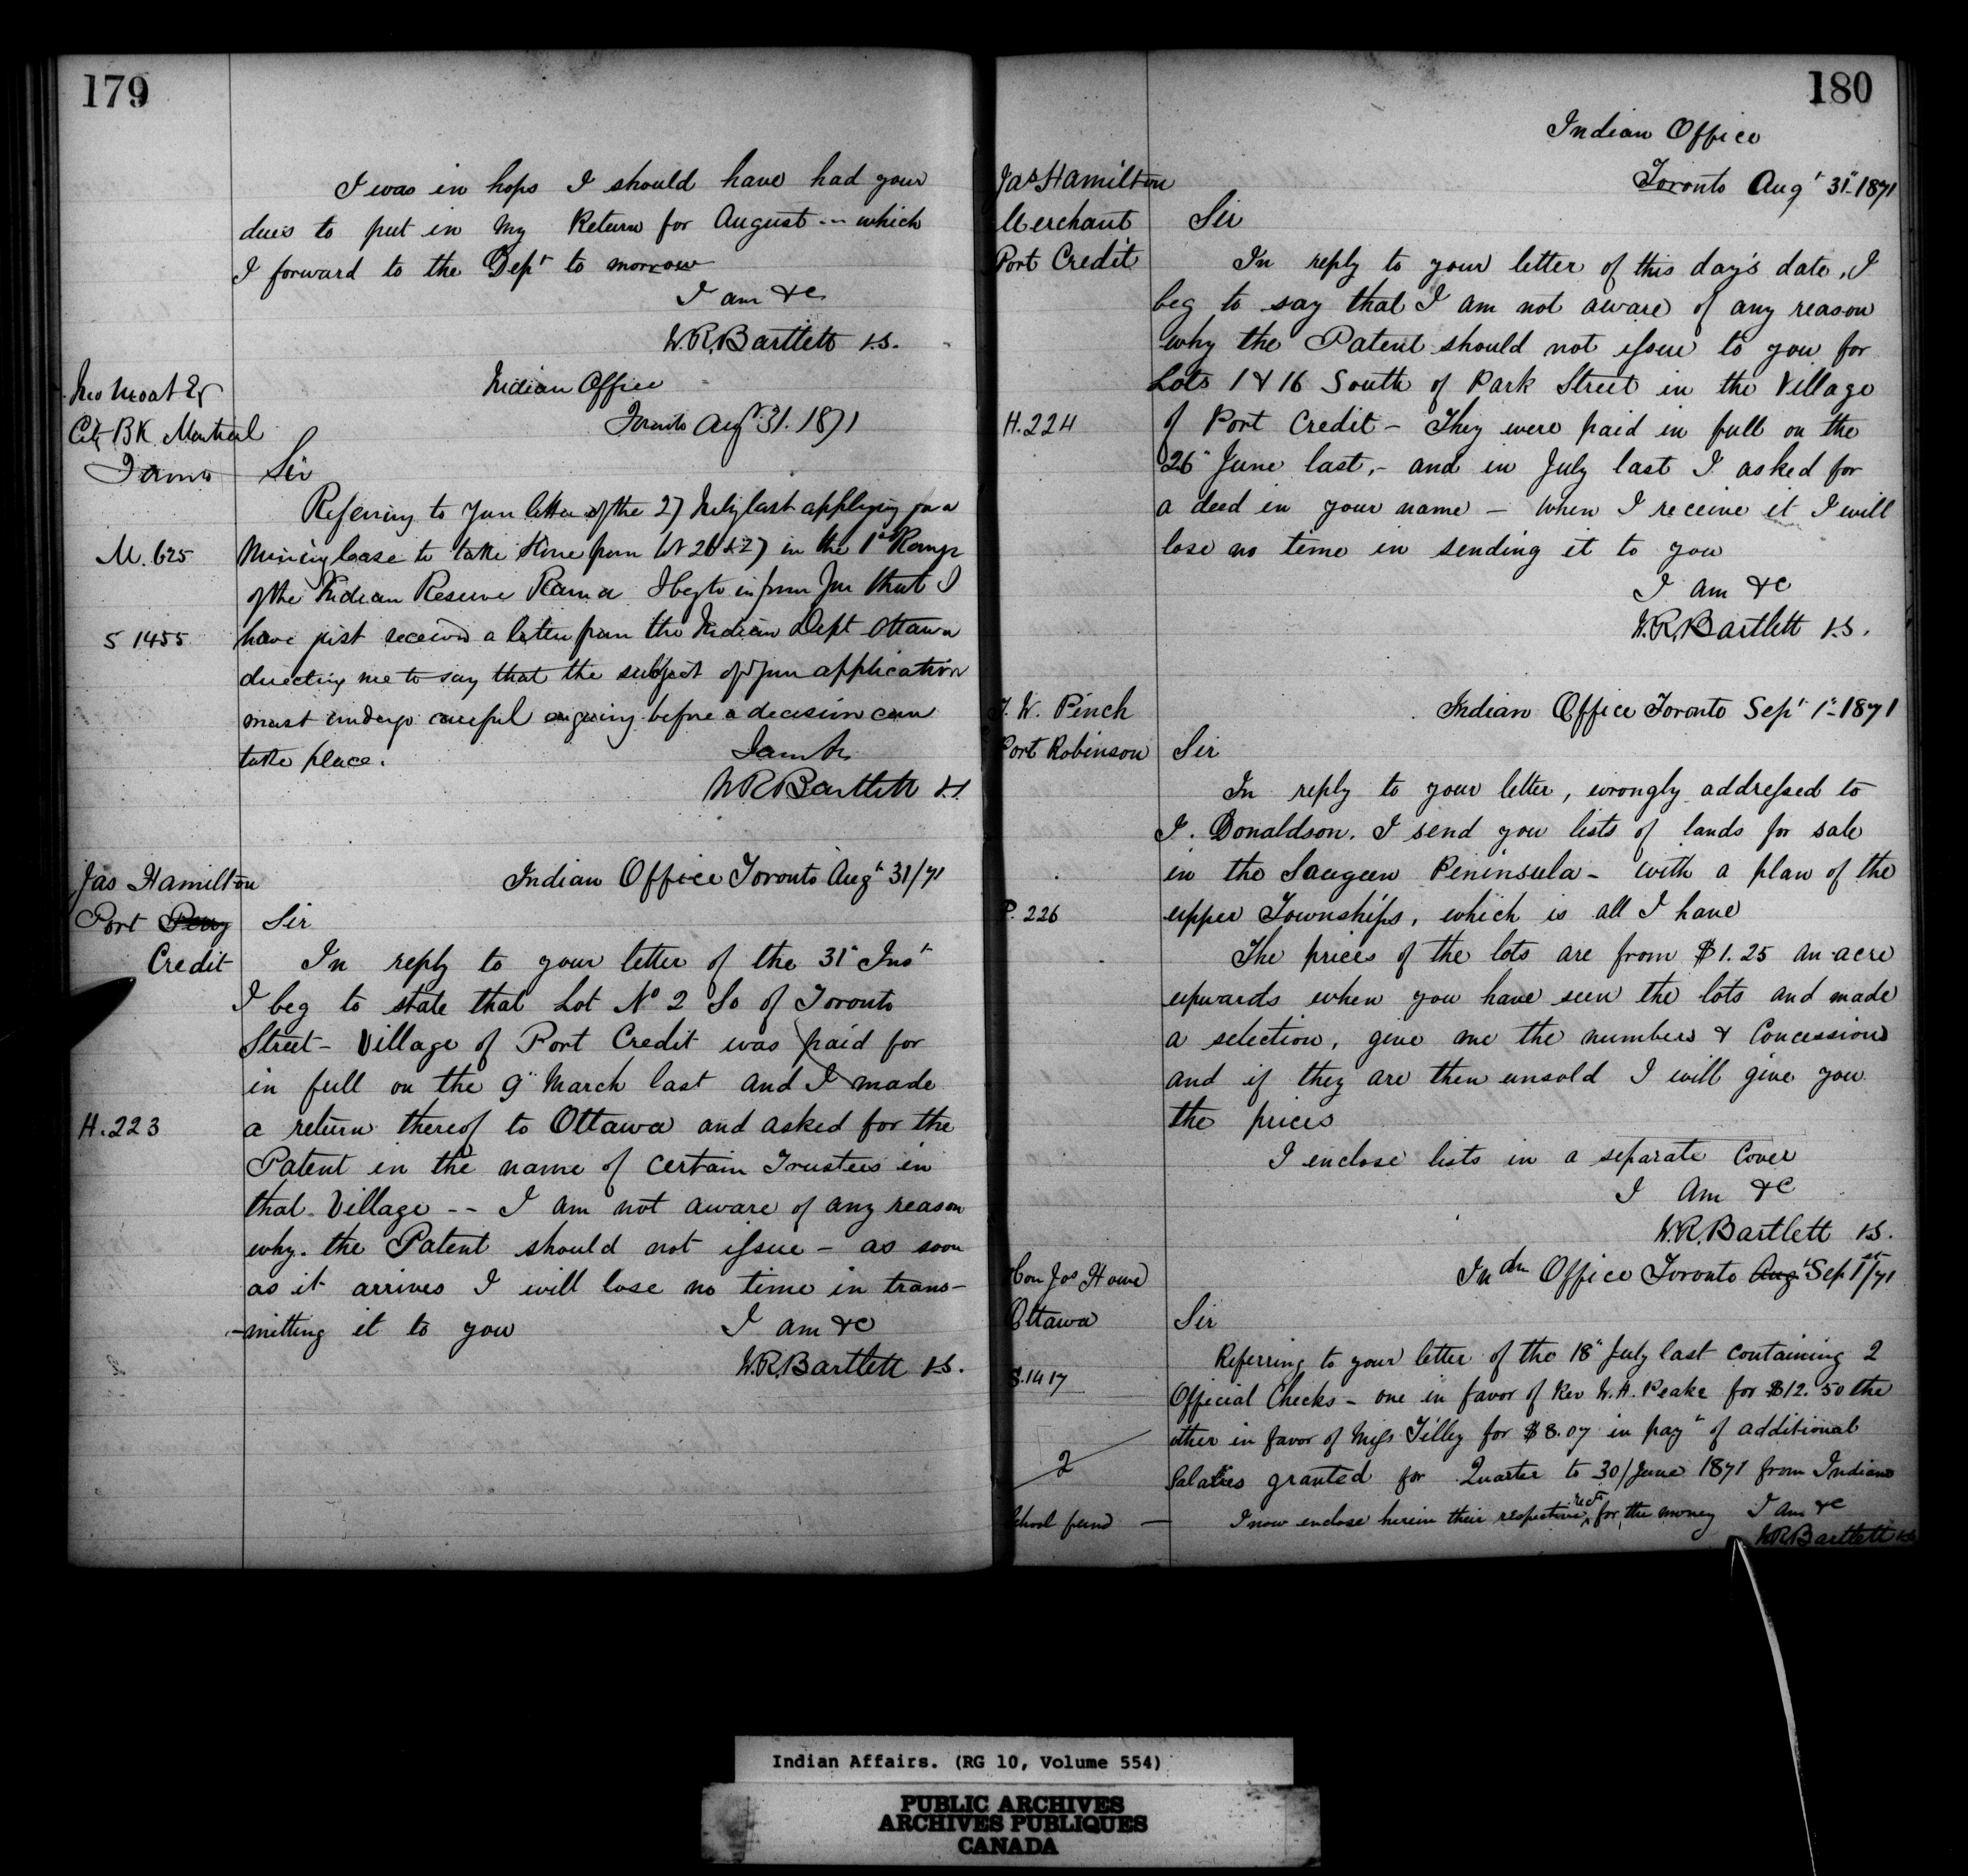 179
I was in hops I should have had your
dues to put in my Return for August -- which
I forward to the Dept to morrow
I am &c
W.R. Bartlett I.S.
Moat Esq
City BK Montreal
Indian Office
Toronto Augt 31. 1871
Sir
Referring to your letter of the 27 July last applying for a
M. 625
Mining lease to take stone from lot 26 & 27 in the 1st Range
of the Indian Reserve Rama I beg to inform you that I
S 1455
have just received a letter from the Indian Dept Ottawa
directing me to say that the subject of your application
must undergo careful enquiry before a decision can
take place.
I am &c
W R Bartlett I.S.
Jas Hamilton
Port Perry
Credit
Indian Office Toronto Augt 31/71
Sir
In reply to your letter of the 31" Inst
I beg to state that Lot No 2 So of Toronto
Street - Village of Port Credit was paid for
in full on the 9" March last and I made
H. 223
a return thereof to Ottawa and asked for the
Patent in the name of certain Trustees in
that Village -- I am not aware of any reason
why the Patent should not issue - as soon
as it arrives I will lose no time in trans-
-mitting it to you
I am &c
W.R. Bartlett I.S.
180
Indian Office
Toronto Augt 31" 1871
Jas Hamilton
Merchant
Port Credit
Sir
In reply to your letter of this day's date, I
beg to say that I am not aware of any reason
why the Patent should not issue to you for
Lots 1 & 16 South of Park Street in the Village
H. 224
of Port Credit - They were paid in full on the
26" June last, - and in July last I asked for
a deed in your name - When I receive it I will
lose no time in sending it to you
I am &c
W.R. Bartlett I.S.
W. Pinch
Port Robinson
Indian Office Toronto Sept 1" 1871
Sir
In reply to your letter, wrongly addressed to
J. Donaldson. I send you lists of lands for sale
in the Saugeen Peninsula - with a plan of the
P. 226
upper Townships, which is all I have
The prices of the lots are from $1.25 an acre
upwards when you have seen the lots and made
a selection, give me the numbers & Concessions
and if they are then unsold I will give you
the prices
I enclose lists in a separate Cover
I am &c
W.R. Bartlett I.S.
Hon Jos Howe
Ottawa
Indn Office Toronto Augt Sep 1st/71
Sir
Referring to your letter of the 18" July last containing 2
S. 1417
Official Checks - one in favor of Rev W.A. Peake for $12.50 the
other in favor of Miss Tilley for $8.07 in payt of additional
2
Salaries granted for Quarter to 30/June 1871 from Indian
School fund
I now enclose herein their respective rects for the money I am &c
W R Bartlett I.S.
Indian Affairs. (RG 10, Volume 554)
PUBLIC ARCHIVES
ARCHIVES PUBLIQUES
CANADA